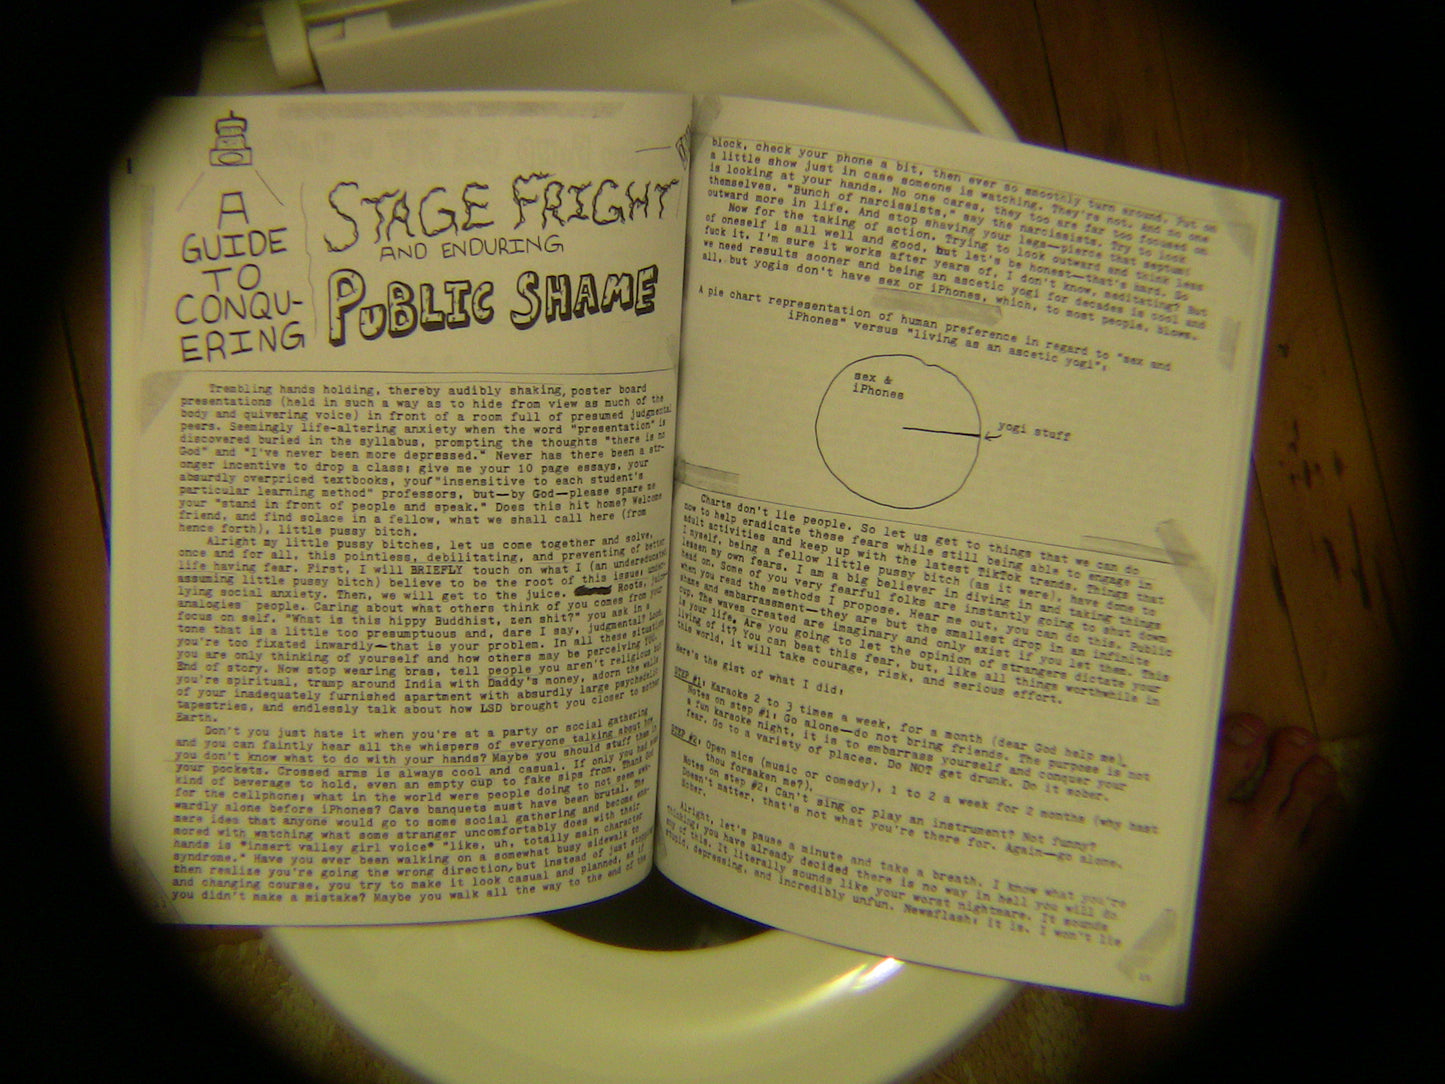 A
GUIDE
TO
CONQU-
ERING
STAGE FRIGHT
AND ENDURING
PUBLIC SHAME
Trembling hands holding, thereby audibly shaking, poster board
presentations (held in such a way as to hide from view as much of the
body and quivering voice) in front of a room full of presumed judgmental
peers. Seemingly life-altering anxiety when the word "presentation" is
discovered buried in the syllabus, prompting the thoughts "there is no
God" and "I've never been more depressed." Never has there been a str-
onger incentive to drop a class; give me your 10 page essays, your
absurdly overpriced textbooks, your "insensitive to each student's
particular learning method" professors, but—by God—please spare me
your "stand in front of people and speak." Does this hit home? Welcome
friend, and find solace in a fellow, what we shall call here (from
hence forth), little pussy bitch.
Alright my little pussy bitches, let us come together and solve,
once and for all, this pointless, debilitating, and preventing of better
life having fear. First, I will BRIEFLY touch on what I (an undereducated
assuming little pussy bitch) believe to be the root of this issue; under-
lying social anxiety. Then, we will get to the juice. Roots, juice—
analogies people. Caring about what others think of you comes from your
focus on self. "What is this hippy Buddhist, zen shit?" you ask in a
tone that is a little too presumptuous and, dare I say, judgmental? Look,
you're too fixated inwardly—that is your problem. In all these situations
you are only thinking of yourself and how others may be perceiving YOU.
End of story. Now stop wearing bras, tell people you aren't religious but
you're spiritual, tramp around India with Daddy's money, adorn the walls
of your inadequately furnished apartment with absurdly large psychedelic
tapestries, and endlessly talk about how LSD brought you closer to mother
Earth.
Don't you just hate it when you're at a party or social gathering
and you can faintly hear all the whispers of everyone talking about how
you don't know what to do with your hands? Maybe you should stuff them in
your pockets. Crossed arms is always cool and casual. If only you had some
kind of beverage to hold, even an empty cup to fake sips from. Thank God
for the cellphone; what in the world were people doing to not seem awk-
wardly alone before iPhones? Cave banquets must have been brutal. The
mere idea that anyone would go to some social gathering and become en-
mored with watching what some stranger uncomfortably does with their
hands is *insert valley girl voice* "like, uh, totally main character
syndrome." Have you ever been walking on a somewhat busy sidewalk to
then realize you're going the wrong direction, but instead of just stopping
and changing course, you try to make it look casual and planned, as if
you didn't make a mistake? Maybe you walk all the way to the end of the
block, check your phone a bit, then ever so smoothly turn around. Put on
a little show just in case someone is watching. They're not. And no one
is looking at your hands. No one cares, they too are far too focused on
themselves. "Bunch of narcissists," say the narcissists. Try to look
outward more in life. And stop shaving your legs—pierce that septum!
Now for the taking of action. Trying to look outward and think less
of oneself is all well and good, but let's be honest—that's hard. So
fuck it. I'm sure it works after years of, I don't know, meditating? But
we need results sooner and being an ascetic yogi for decades is cool and
all, but yogis don't have sex or iPhones, which, to most people, blows.
A pie chart representation of human preference in regard to "sex and
iPhones" versus "living as an ascetic yogi":
sex &
iPhones
yogi stuff
Charts don't lie people. So let us get to things that we can do
now to help eradicate these fears while still being able to engage in
adult activities and keep up with the latest TikTok trends. Things that
I myself, being a fellow little pussy bitch (as it were), have done to
lessen my own fears. I am a big believer in diving in and taking things
head on. Some of you very fearful folks are instantly going to shut down
when you read the methods I propose. Hear me out, you can do this. Public
shame and embarrassment—they are but the smallest drop in an infinite
cup. The waves created are imaginary and only exist if you let them. This
is your life. Are you going to let the opinion of strangers dictate your
living of it? You can beat this fear, but, like all things worthwhile in
this world, it will take courage, risk, and serious effort.
Here's the gist of what I did:
STEP #1: Karaoke 2 to 3 times a week, for a month (dear God help me).
Notes on step #1: Go alone—do not bring friends. The purpose is not
a fun karaoke night, it is to embarrass yourself and conquer your
fear. Go to a variety of places. Do NOT get drunk. Do it sober.
STEP #2: Open mics (music or comedy), 1 to 2 a week for 2 months (why hast
thou forsaken me?).
Notes on step #2: Can't sing or play an instrument? Not funny?
Doesn't matter, that's not what you're there for. Again—go alone.
Sober.
Alright, let's pause a minute and take a breath. I know what you're
thinking; you have already decided there is no way in hell you will do
any of this. It literally sounds like your worst nightmare. It sounds
stupid, depressing, and incredibly unfun. Newsflash: it is. I won't lie